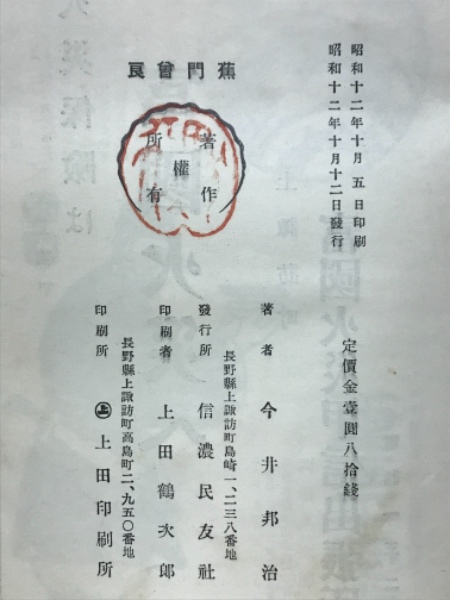 昭和十二年十月五日印刷
昭和十二年十月十二日發行
定價金壹圓八拾錢
蕉門曾良
著作權所有
著者 今井邦治
長野縣上諏訪町島崎一、二三八番地
發行所 信濃民友社
印刷者 上田鶴次郎
長野縣上諏訪町高島町二、九五〇番地
印刷所 ㊤上田印刷所